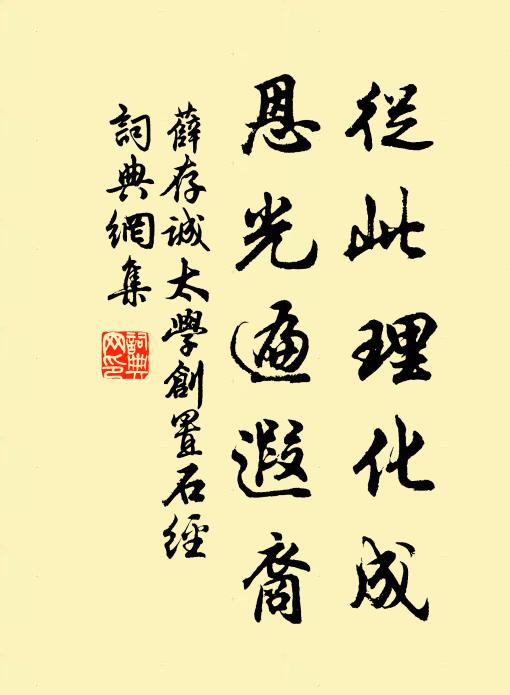 從此理化成
恩光遍遐裔
薛存誠太學創置石經
詞典網集
詞典網印